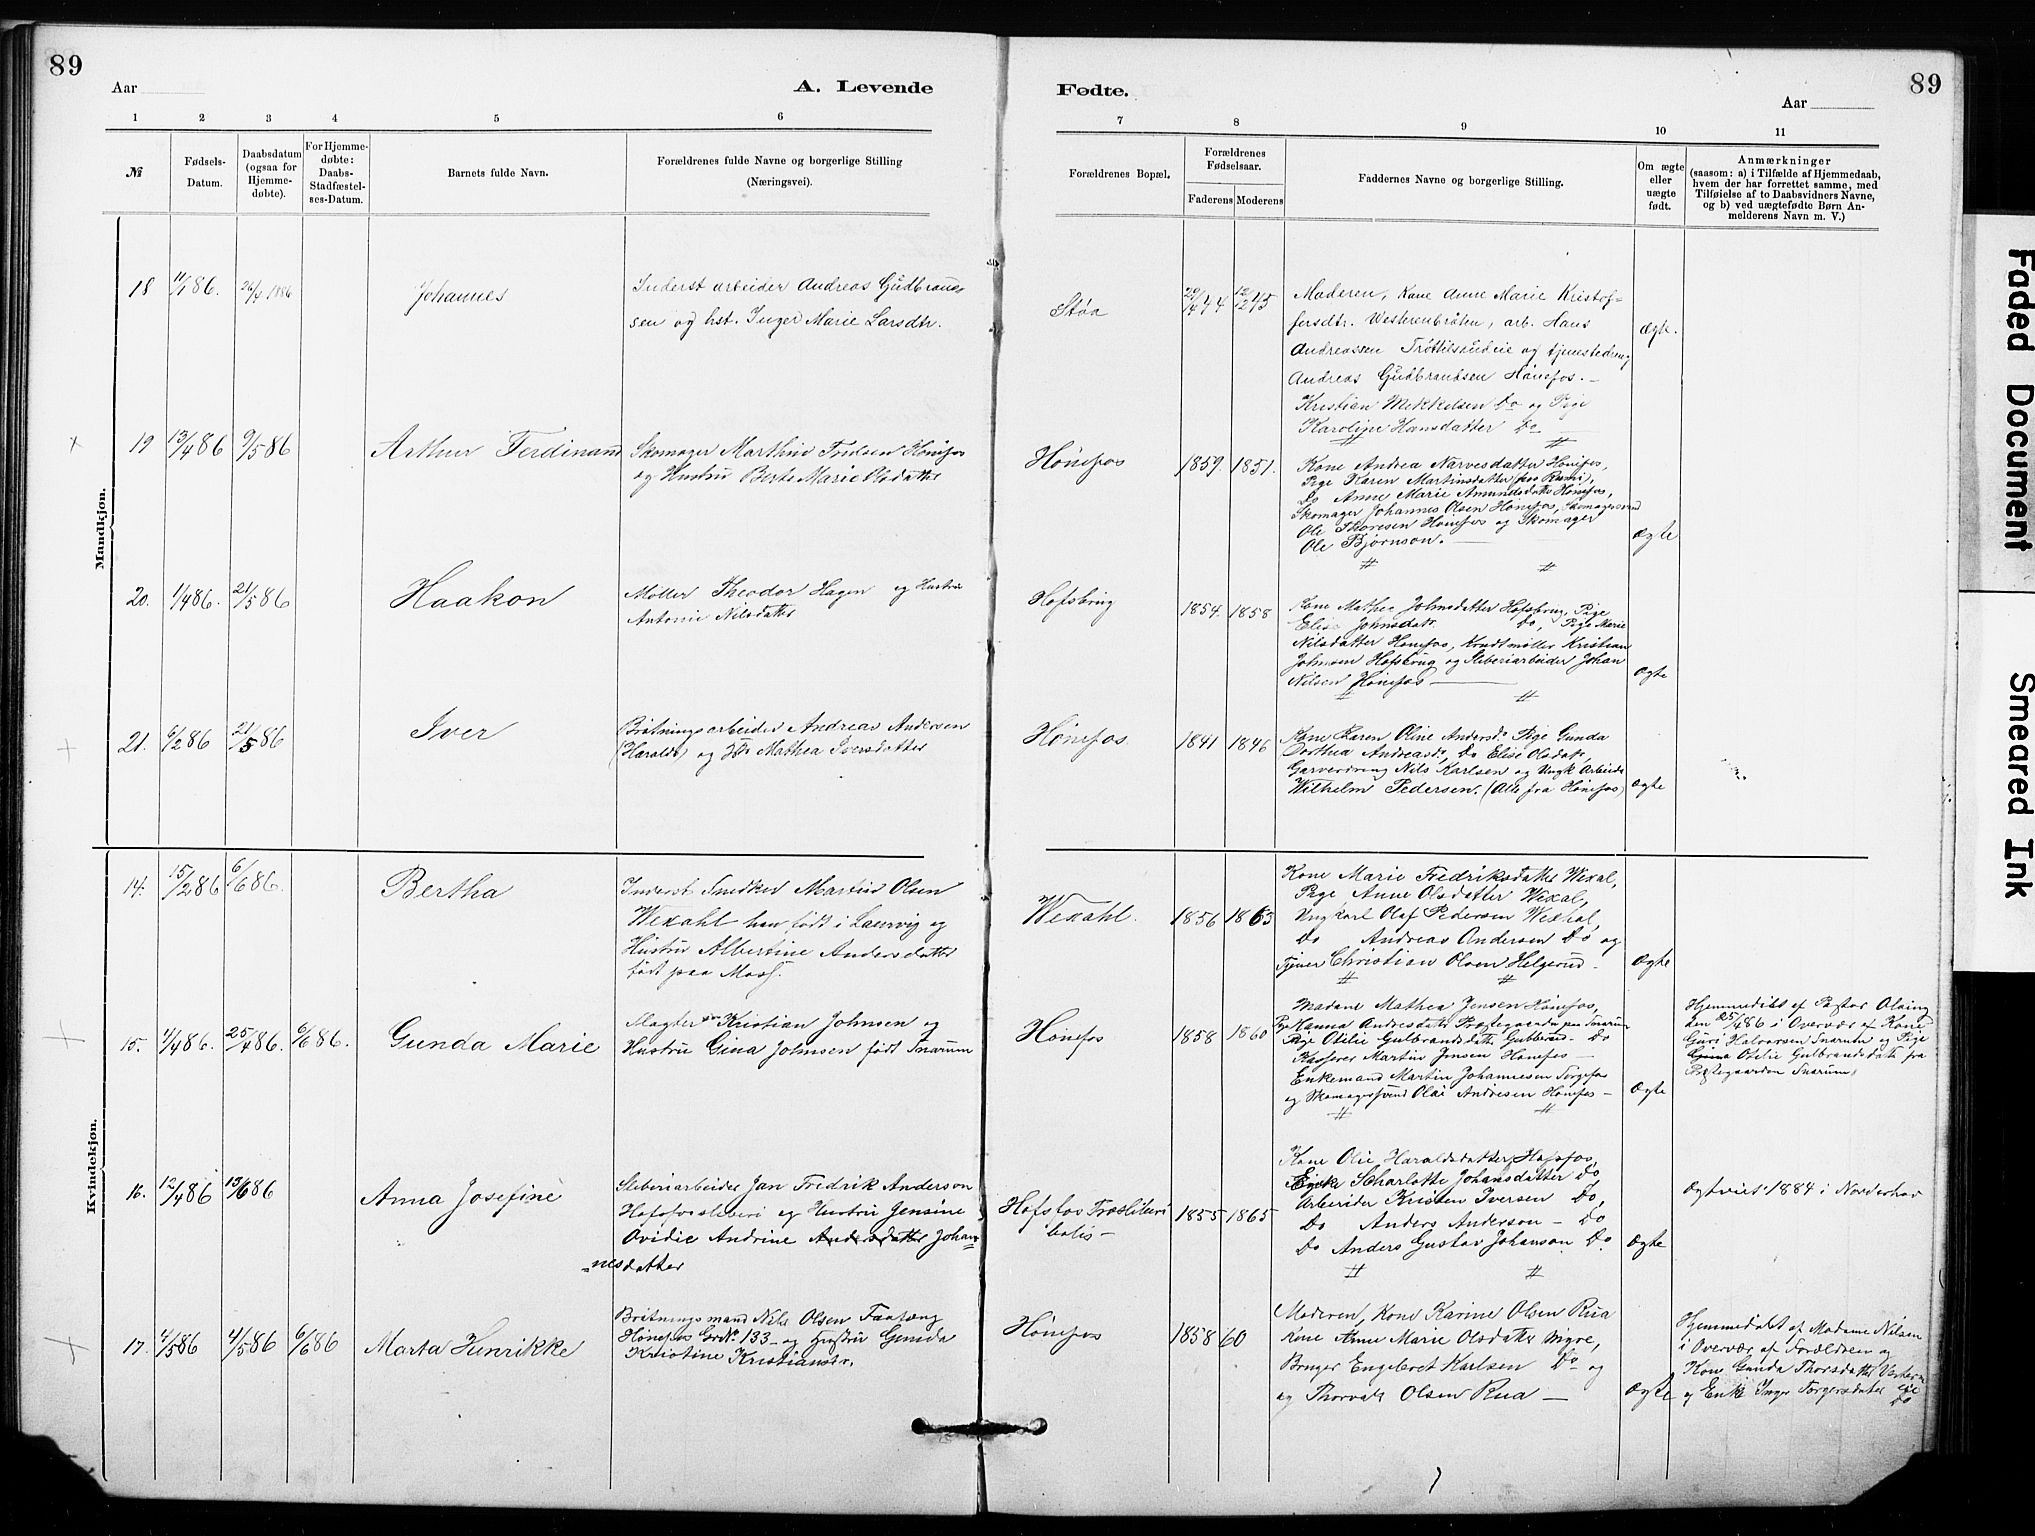 89
Aar
A. Levende
1 2 3 4 5 6
№
Fødsels-
Datum.
Daabsdatum
(ogsaa for
Hjemme-
døbte).
For Hjemme-
døbte:
Daabs-
Stadfæstel-
ses-Datum.
Barnets fulde Navn.
Forældrenes fulde Navne og borgerlige Stilling
(Næringsvei).
Fødte.
Aar
89
7 8 9 10 11
Forældrenes Bopæl.
Forældrenes
Fødselsaar.
Faderens Moderens
Faddernes Navne og borgerlige Stilling.
Om ægte
eller
uægte
født.
Anmærkninger
(saasom: a) i Tilfælde af Hjemmedaab,
hvem der har forrettet samme, med
Tilføielse af to Daabsvidners Navne,
og b) ved uægtefødte Børn An-
melderens Navn m. V.)
Mandkjøn.
18 11/1 86. 26/4 1886 Johannes
Inderst arbeider Andreas Gudbrand-
sen og hst. Inger Marie Larsdtr.
Støa
Moderen, Kone Anne Marie Kristof-
fersdtr. Westerenbråten, arb. Hans
Andreassen Trøttilsrudeie og tjenestedreng
Andreas Gudbrandsen Hönefos. —
Kristian Mekkelsen Do og Pige
Karoline Hansdatter Do
ægte.
19 13/4 86 9/5 86 Arthur Ferdinand
Skomager Marthin Hönefos
og Hustru Berte Marie Olsdatter
Hönefos 1859. 1851.
Kone Andrea Narvesdatter Hönefos,
Pige Karen Martinsdatter
Do Anne Marie Amundsdatter Hönefos,
Skomager Johannes Olsen Hönefos, Skomagersvend
Ole Thoresen Hönefos og Skomager
Ole Bjørnson.
Ægte
20. 1/4 86. 21/5 86 Haakon
Møller Theodor Hagen og Hustru
Antonie Nilsdatter
Hofsbrug 1854. 1858
Kone Mathea Johnsdatter Hofsbrug, Pige
Elise Johnsdatr. Do, Pige Marie
Nilsdatter Hönefos, Møller Kristian
Johnsen Hofsbrug og Sliberiarbeider Johan
Nilsen Hönefos
Ægte
21. 6/2 86 21/5 86 Iver
Brötningsarbeider Andreas Andersen
og Mathea Iversdatter
Hönefos. 1841 1846
Kone Karen Oline Andersd. Pige Gunda
Dorthea Andreasd. Do Elise Olsdat,
Garverdreng Nils Karlsen og Ungk Arbeider
Wilhelm Pedersen. (Alle fra Hönefos)
Ægte
Kvindekjøn.
14. 15/2 86 6/6 86. Bertha
Inderst Snedker Martin Olsen
Wexahl han født i Laurvig og
Hustru Albertine Andersdatter
født paa Moss.
Wexahl. 1856 1863
Kone Marie Fredriksdatter Wexal,
Pige Anne Olsdatter Wexal,
Ungkarl Olaf Pedersen Wexal,
Do Andreas Andersen Do og
Tjener Christian Olsen Helgerud.
Ægte
15. 4/4 86. 25/4 86. 6/6 86. Gunda Marie
Slagter Kristian Johnsen og
Hustru Gina Johnsen født Snarum
Hönefos 1858 1860
Madame Mathea Jensen Hönefos,
Pige Hanna Andresdatter Præstegaarden paa Snarum
Pige Otelie Gulbrandsdatter Do
Kasserer Martin Jensen Hönefos —
Enkemand Martin Johannesen
og Skomagersvend Olai Andresen Hönefos —
Ægte
Hjemmedöbt af Pastor
den 25/4 86 i Overvær af Kone
Guri Halvorsen Snarum og Pige
Otelie Gulbrandsdatter fra
Præstegaarden Snarum.
16. 12/4 86 13/6 86 Anna Josefine
Sliberiarbeider Jan Fredrik Anderson
Hofsfossliberi og Hustru Jensine
Ovidie Andrine Andersdatter Johan-
=nesdatter
Hofsfos Træsliberi
bolig — 1855 1865
Kone Olie Haraldsdatter Hofsfos,
Charlotte Johansdatter Do,
Arbeider Kristen Iversen Do,
Do Anders Anderson — Do,
Do Anders Gustav Johanson Do.
Ægte
Ogtviet 1884 i Norderhov
17. 4/5 86 4/5 86 6/6 86 Marta Henrikke
Brötningsmand Nils Olsen
Hönefos Grdno. 133 og Hustru Gunda
Kristine Kristiansdtr.
Hönefos 1858 60
Moderen, Kone Karine Olsen Rua
Kone Anne Marie Olsdatter Myre,
Bruger Engebret Karlsen Do og
og Thorvald Olsen Rua —
Ægte
Hjemmedöbt af Madame Nilsen
i Overvær af Forældren og
Kone Gunda Thorsdatter
og Enke Inger Torgersdatter
Do
Faded Document
Smeared Ink